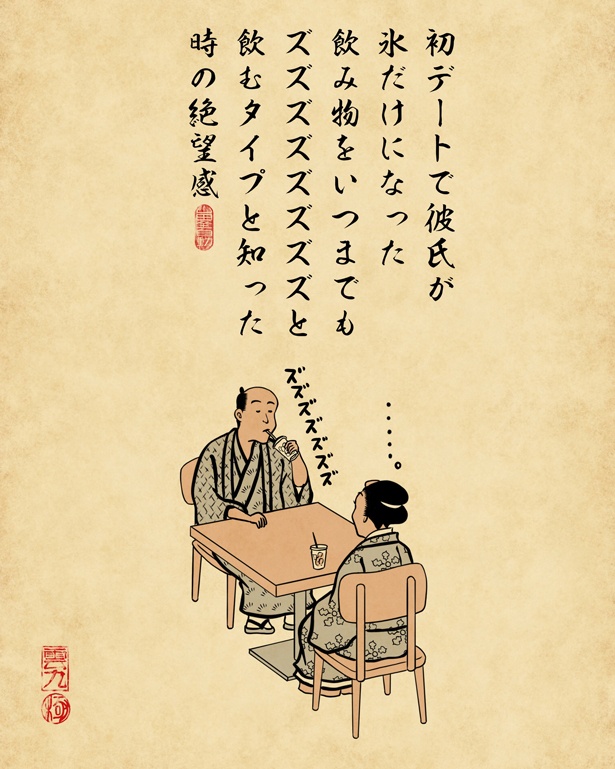 初デートで彼氏が
氷だけになった
飲み物をいつまでも
ズズズズズズズズと
飲むタイプと知った
時の絶望感
ズズズズズズズズ
・・・・・。